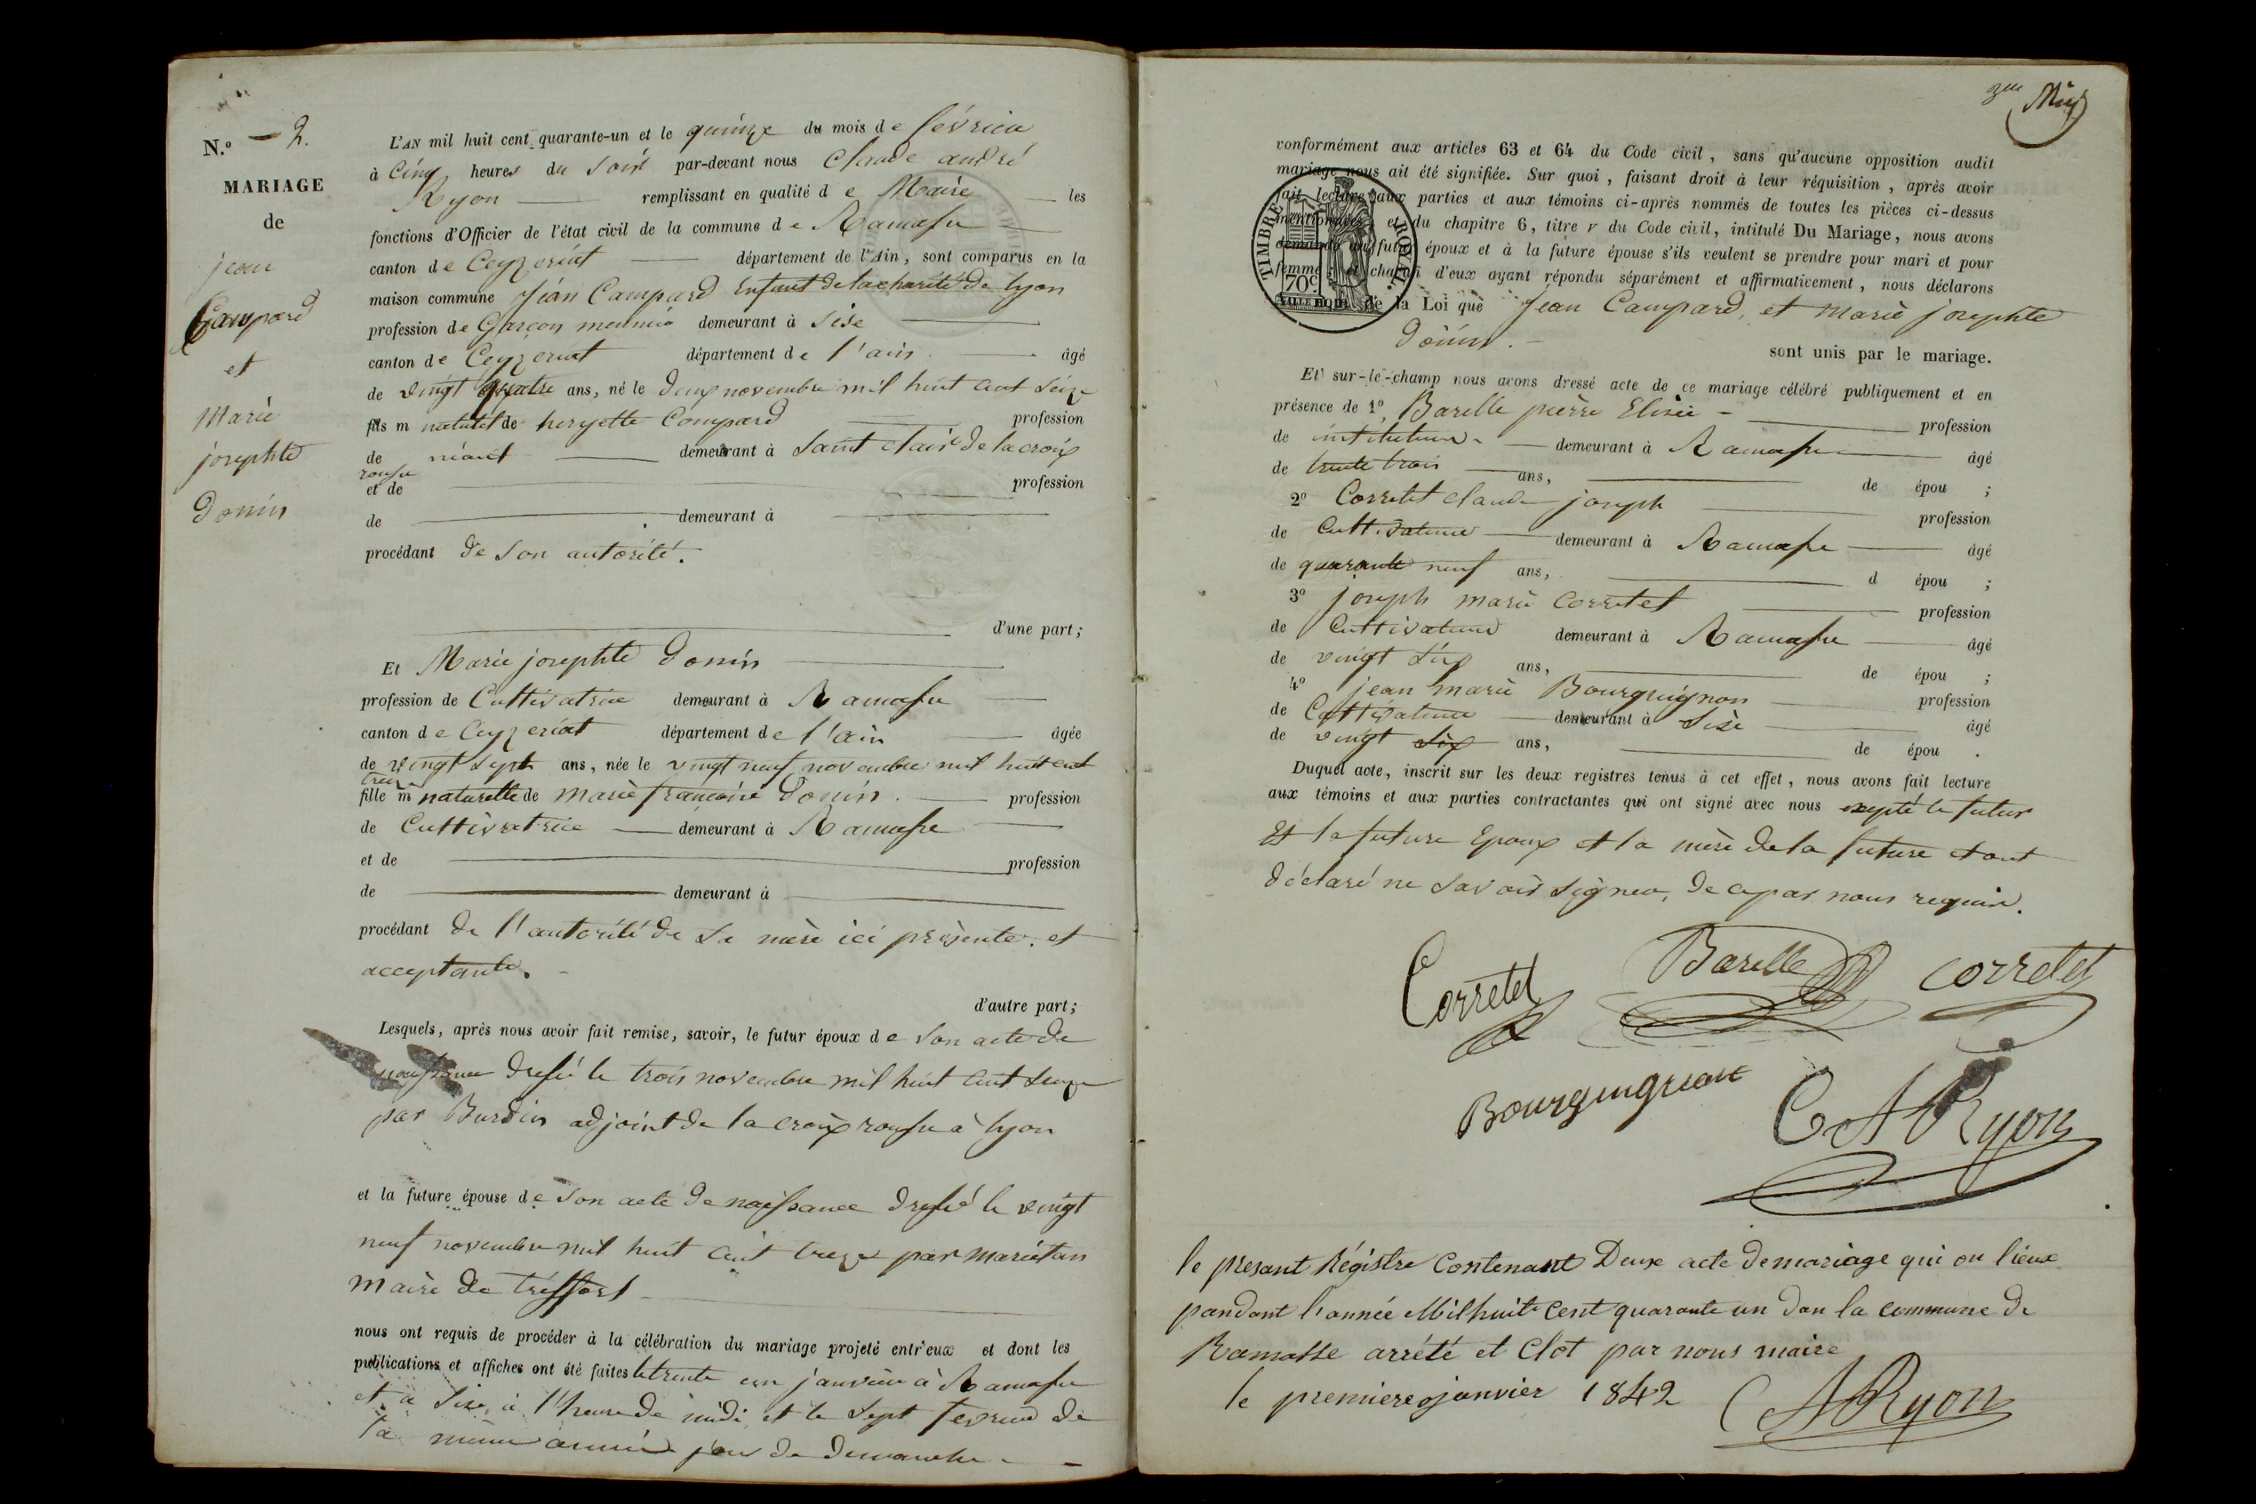 N.º - 2.
MARIAGE
de
jean
Campard
et
Marie
josephte
donin
L'AN mil huit cent quarante-un et le quinze du mois de février
à Cinq heures du soir par-devant nous Claude andré
Ryon remplissant en qualité de Maire les
fonctions d'Officier de l'état civil de la commune de Ramasse
canton de Ceyzeriat département de l'Ain, sont comparus en la
maison commune Jéan Campard Enfant de la charité de lyon
profession de Garçon meunier demeurant à Sise
canton de Ceyzeriat département de l'ain âgé
de vingt quatre ans, né le deux novembre mil huit cent Seize
fils m naturel de heryette Compard profession
de néant demeurant à Saint clair de la croix
rousse
et de profession
de demeurant à
procédant de son autorité.
d'une part;
Et Marie josephte donin
profession de Cultivatrice demeurant à Ramasse
canton de Ceyzeriat département de l'ain âgée
de vingt Sept ans, née le vingt neuf novembre mil huit cent
treize
fille m naturelle de marie françoise donin profession
de Cultivatrice demeurant à Ramasse
et de profession
de demeurant à
procédant de l'autorité de Sa mère ici présente et
acceptante.
d'autre part;
Lesquels, après nous avoir fait remise, savoir, le futur époux de Son acte de
naissance dressé le trois novembre mil huit cent Seize
par Burdin adjoint de la croix rousse à lyon
et la future épouse de Son acte de naissance dressé le vingt
neuf novembre mil huit cent treize par marietan
maire de tréffort
nous ont requis de procéder à la célébration du mariage projeté entr'eux et dont les
publications et affiches ont été faites le trente un janvier à Ramasse
et à Sise, à l'heure de midi et le Sept fevrier de
la même année jour de dimanche
3me Mij
conformément aux articles 63 et 64 du Code civil, sans qu'aucune opposition audit
mariage nous ait été signifiée. Sur quoi, faisant droit à leur réquisition, après avoir
fait lecture aux parties et aux témoins ci-après nommés de toutes les pièces ci-dessus
mentionnées et du chapitre 6, titre v du Code civil, intitulé Du Mariage, nous avons
demandé au futur époux et à la future épouse s'ils veulent se prendre pour mari et pour
femme, et chacun d'eux ayant répondu séparément et affirmativement, nous déclarons
au nom de la Loi que Jéan Campard, et marie josephte
donin. sont unis par le mariage.
TIMBRE ROYAL.
70c
Et sur-le-champ nous avons dressé acte de ce mariage célébré publiquement et en
présence de 1º Barelle pierre Elisée profession
de instituteur demeurant à Ramasse âgé
de trente trois ans, de épou ;
2º Corretet claude joseph profession
de Cultivateur demeurant à Ramasse âgé
de quarante neuf ans, d épou ;
3º joseph marie Corretet profession
de Cultivateur demeurant à Ramasse âgé
de vingt Six ans, de épou ;
4º jean marie Bourguignon profession
de Cultivateur demeurant à Sise âgé
de vingt Six ans, de épou .
Duquel acte, inscrit sur les deux registres tenus à cet effet, nous avons fait lecture
aux témoins et aux parties contractantes qui ont signé avec nous exepté le futur
Et la future Epoux et la mère de la future et ont
déclaré ne Savoir Signer, de ce par nous requis.
Corretet Barelle corretet
Bourguignon CARyon
le presant Régistre Contenant Deux acte de mariage qui on lieux
pandant l'année Milhuit Cent quarante un dan la commune de
Ramasse arrété et Clot par nous maire
le premiere janvier 1842 CARyon